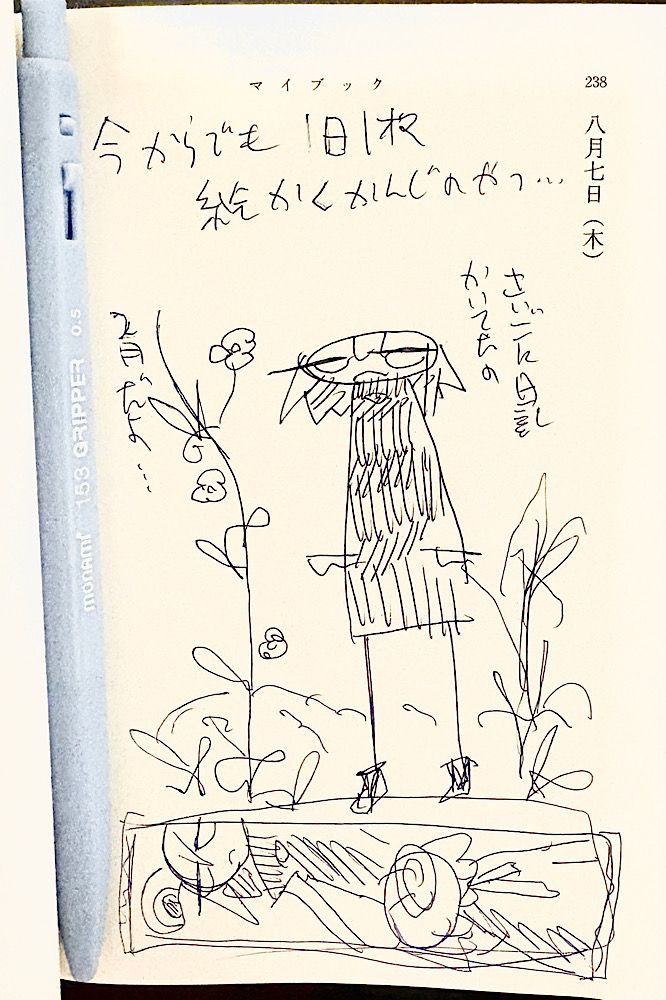 マイブック
238
八月七日（木）
今からでも1日1枚
絵かくかんじのやつ…
さいごに日記
かいてたの
2月だよ…
monami 153 GRIPPER 0.5